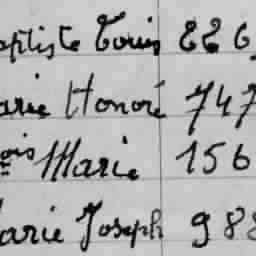 aptiste Louis 226
arie Honoré 747
ois Marie 156
Marie Joseph 988